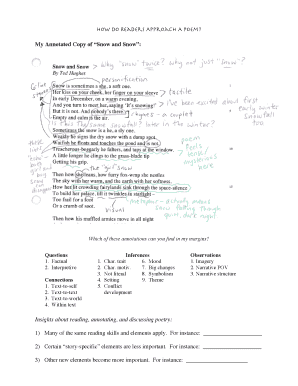 HOW DO READERS APPROACH A POEM?
My Annotated Copy of "Snow and Snow":
Why "snow" twice? Why not just "Snow"?
Snow and Snow
By Ted Hughes
personification
Snow is sometimes a she, a soft one.
Her kiss on your cheek, her finger on your sleeve
tactile
In early December, on a warm evening,
And you turn to meet her, saying "It's snowing!"
I've been excited about first
snowfall
too
But it is not. And nobody's there.
rhymes - a couplet
Empty and calm is the air.
Is this the same snowfall? Later in the winter?
Sometimes the snow is a he, a sly one.
Weakly he signs the dry stone with a damp spot.
Waifish he floats and touches the pond and is not.
Treacherous-beggarly he falters, and taps at the window.
A little longer he clings to the grass-blade tip
Getting his grip.
poem
feels
more
mysterious
here
Then how she leans, how furry foxwrap she nestles
The sky with her warm, and the earth with her softness.
How her lit crowding fairylands sink through the space-silence
To build her palace, till it twinkles in starlight—
Too frail for a foot
Or a crumb of soot.
visual
Then how his muffled armies move in all night
Which of these annotations can you find in my margins?
Questions
1. Factual
2. Interpretive
Connections
1. Text-to-self
2. Text-to-text
3. Text-to-world
4. Within text
Inferences
1. Char. trait
2. Char. motiv
3. Not friend
4. Setting
5. Conflict
development
6. Mood
7. Big changes
8. Symbolism
9. Theme
Observations
1. Imagery
2. Narrative POV
3. Narrative structure
Insights about reading, annotating, and discussing poetry:
1) Many of the same reading skills and elements apply. For instance:
2) Certain "story-specific" elements are less important. For instance:
3) Other new elements become more important. For instance: